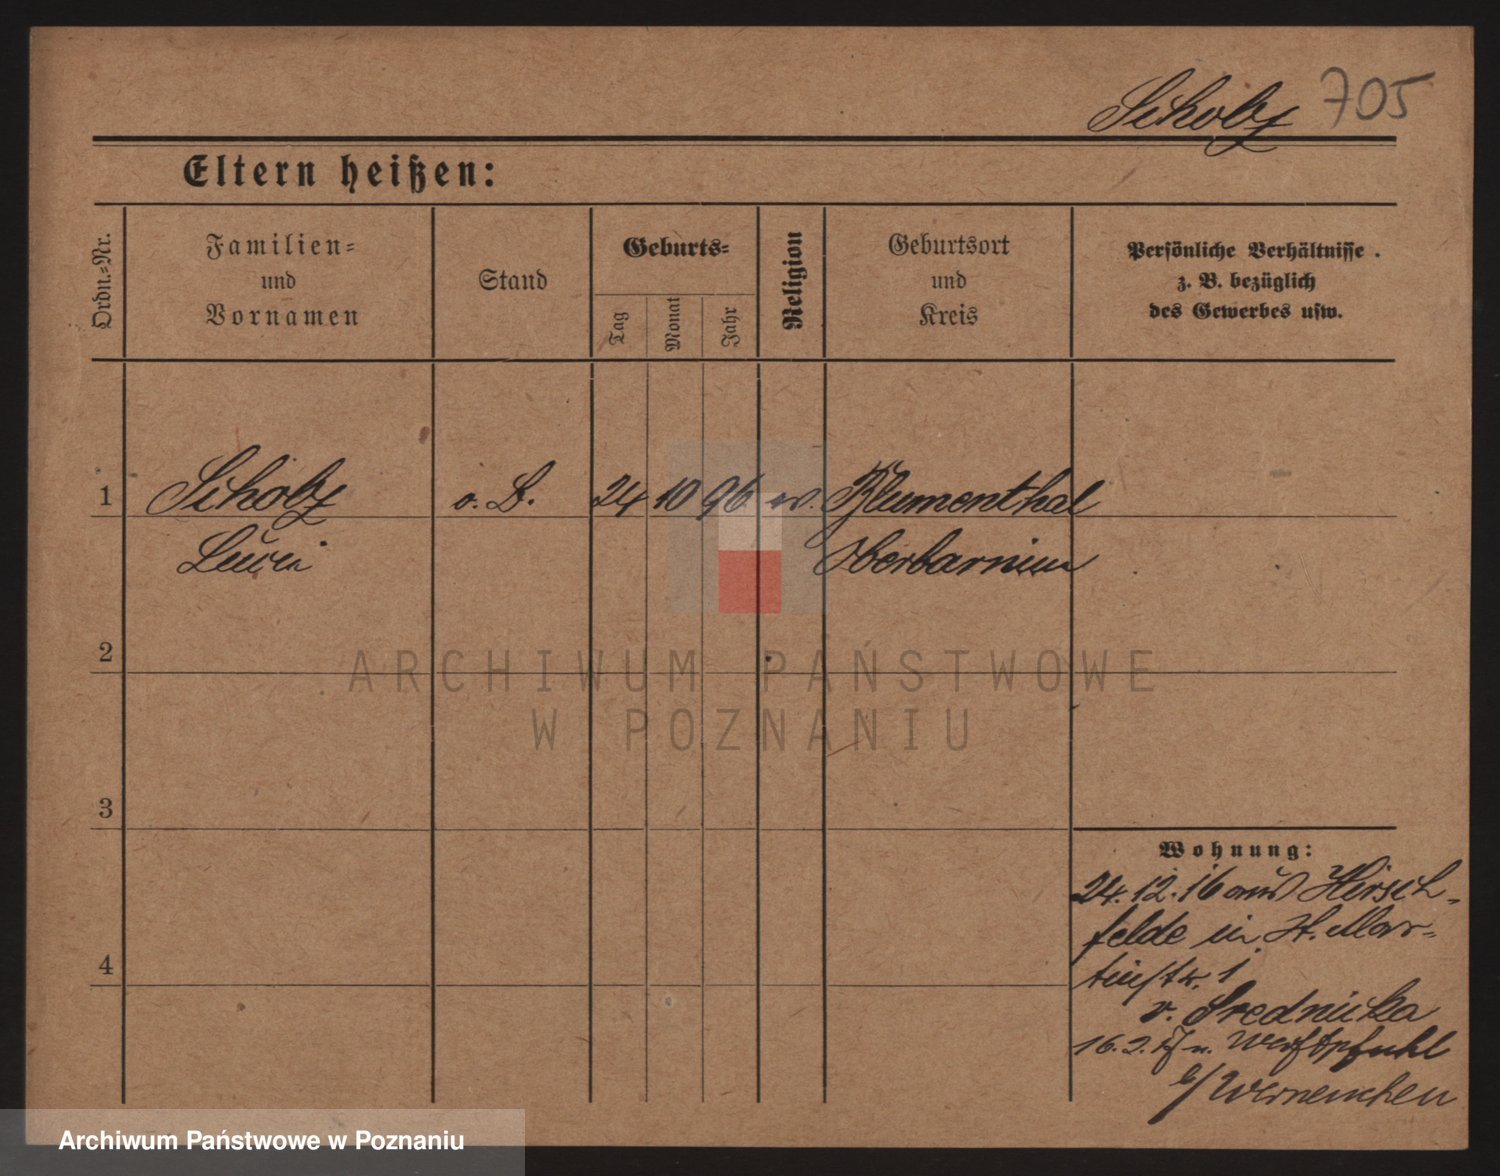 Scholz 705
Eltern heißen:
Ordn.-Nr.
Familien-
und
Vornamen
Stand
Geburts-
Tag
Monat
Jahr
Religion
Geburtsort
und
Kreis
Persönliche Verhältnisse .
z. B. bezüglich
des Gewerbes usw.
1 Scholz 24 10 96 ev. Blumenthal
Oberbarnim
2
3
4
Wohnung:
24.12.16 aus Hirsch-
felde in St. Mar-
tinstr. 1
v. Srednicka
16. 2. 17 n. Werftpfuhl
b/ Werneuchen
ARCHIWUM PAŃSTWOWE
W POZNANIU
Archiwum Państwowe w Poznaniu